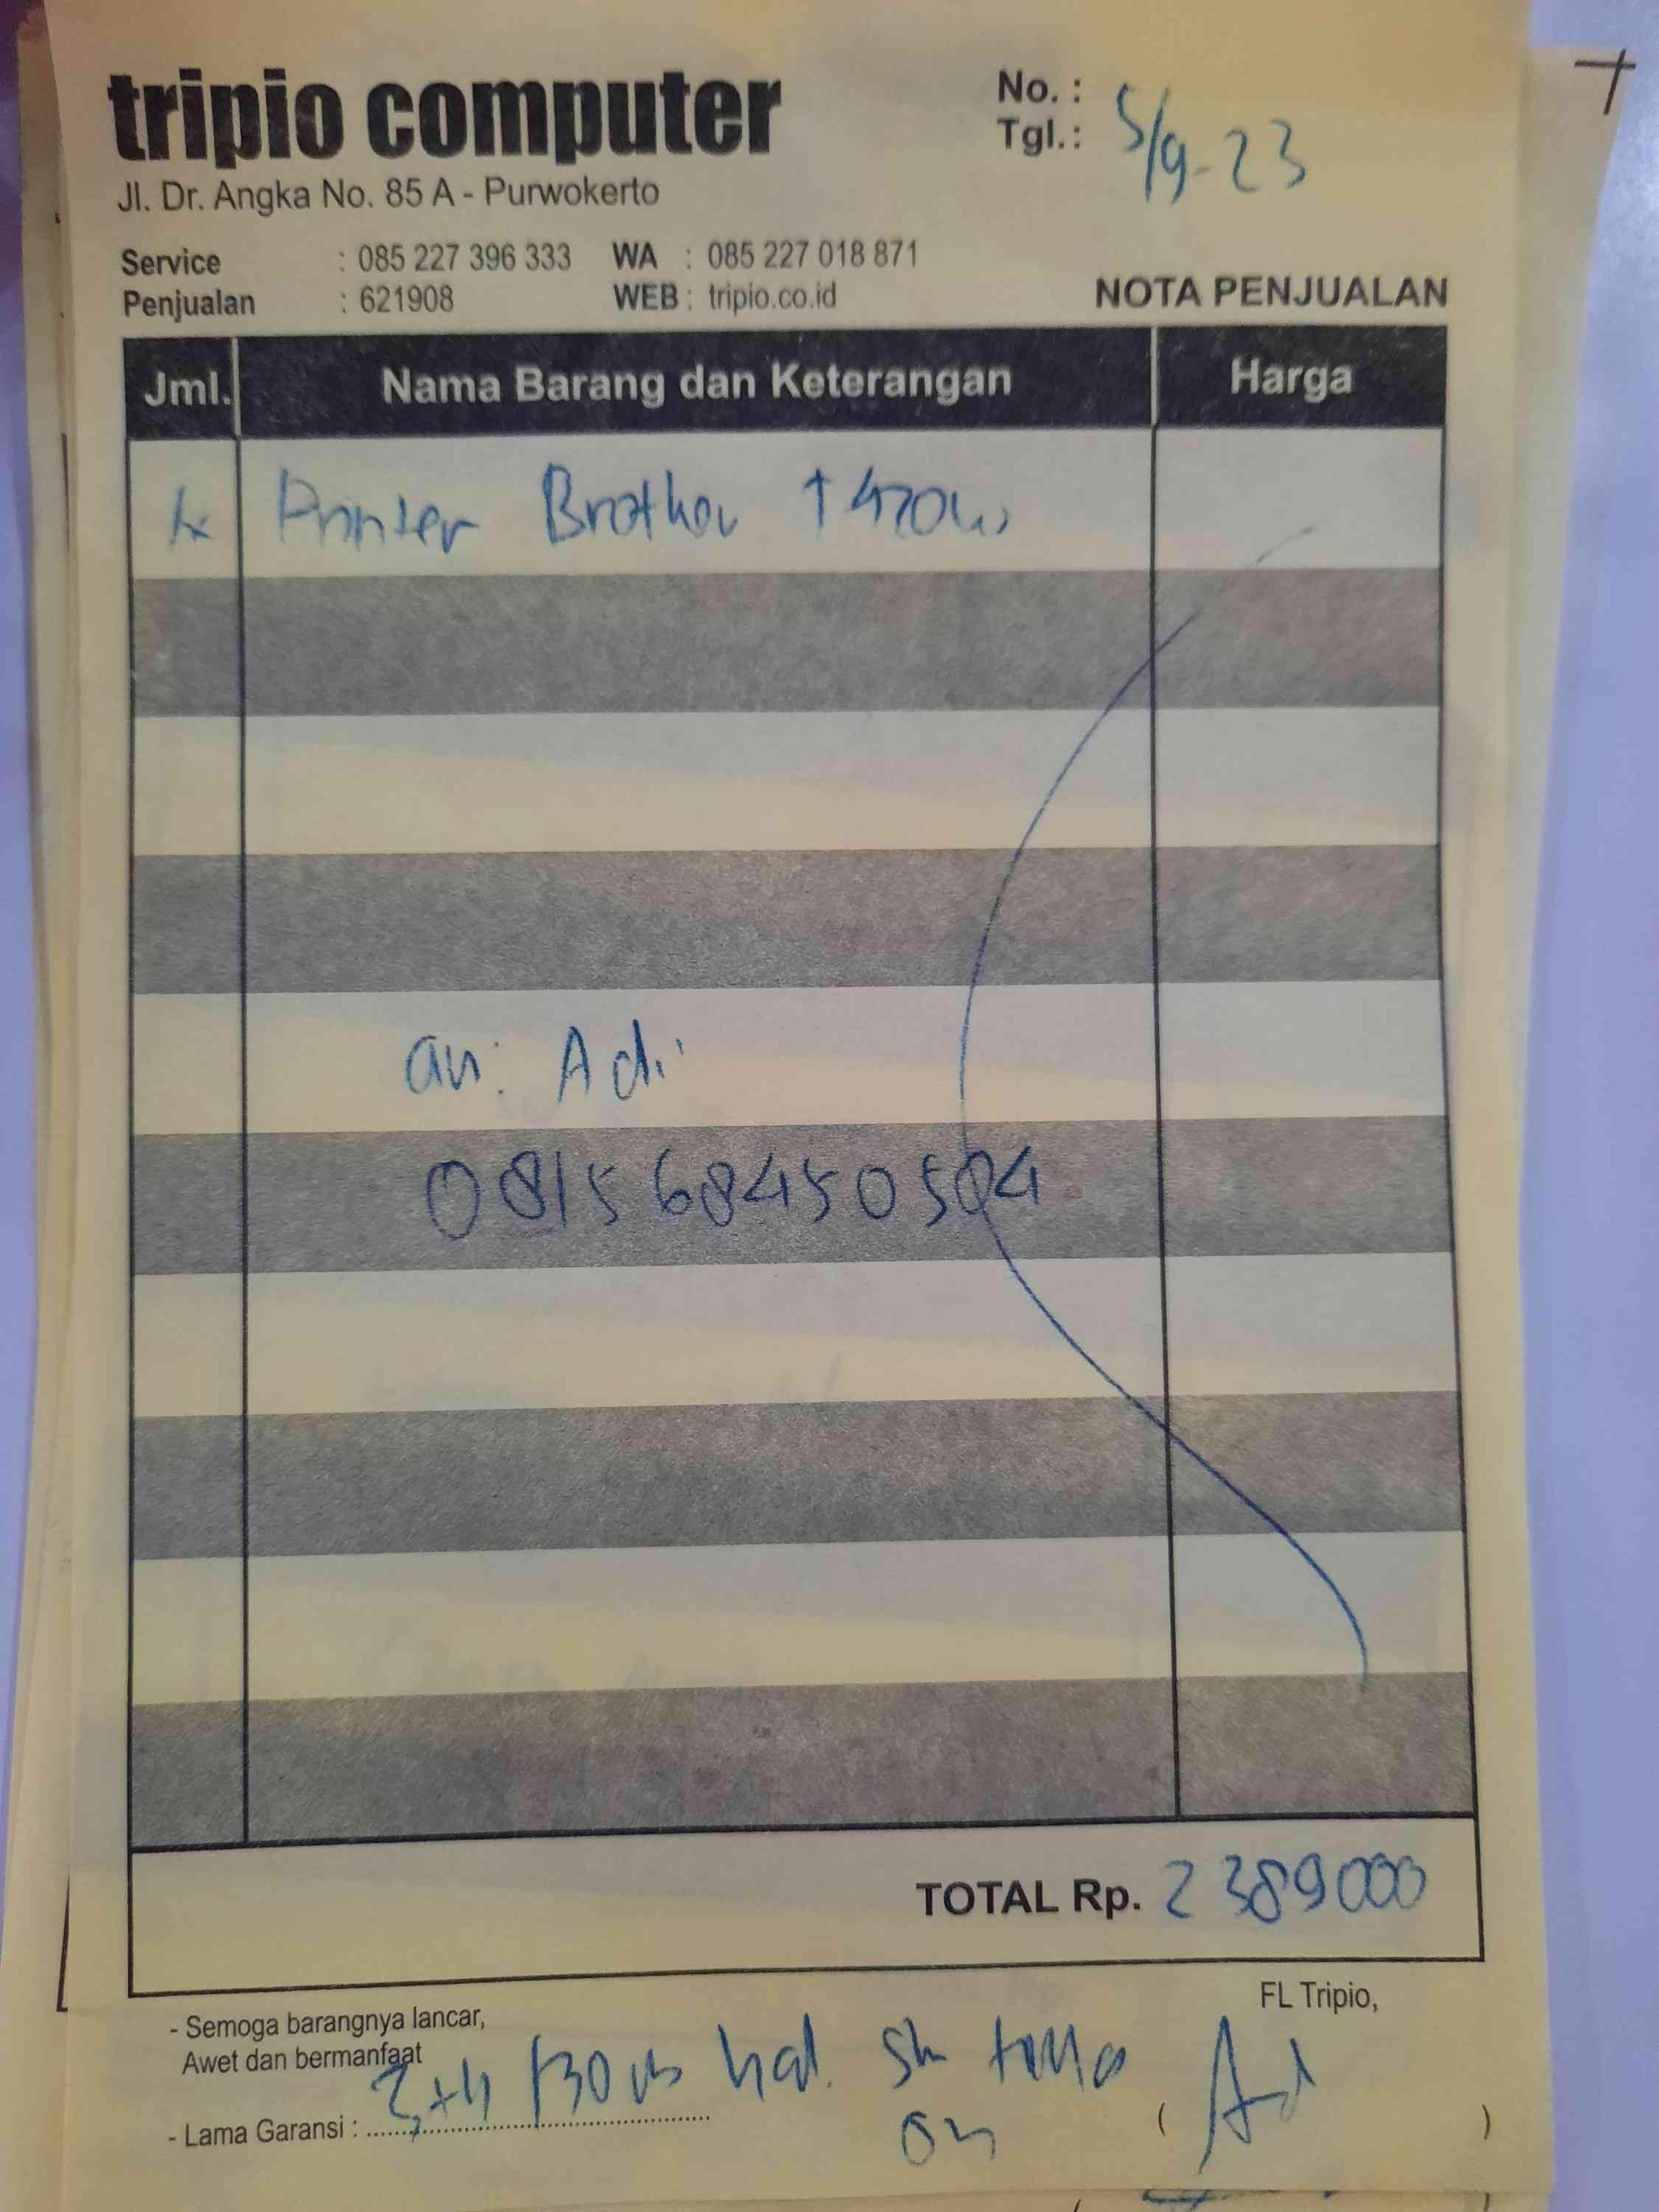 tripio computer
Jl. Dr. Angka No. 85 A - Purwokerto
No. :
Tgl. : 5/9-23
Service : 085 227 396 333 WA : 085 227 018 871
Penjualan : 621908 WEB : tripio.co.id
NOTA PENJUALAN
Jml. Nama Barang dan Keterangan Harga
1x Printer Brother T420w
an: Adi
081568450504
TOTAL Rp. 2389000
- Semoga barangnya lancar,
Awet dan bermanfaat
FL Tripio,
- Lama Garansi : 3th /30rb hal.
( Ad )